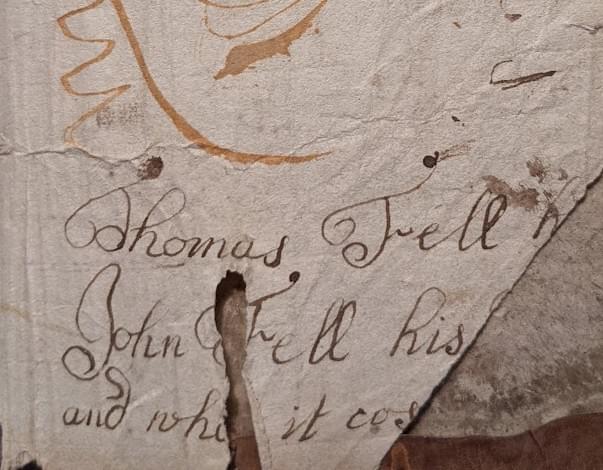 Thomas Fell h
John Fell his
and whe it cos